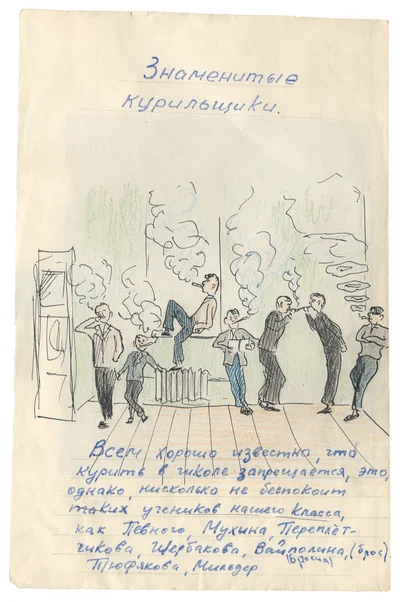 Знаменитые
курильщики.
Всем хорошо известно, что
курить в школе запрещается, это,
однако, нисколько не беспокоит
таких учеников нашего класса,
как Певного, Мухина, Переплёт-
чикова, Щербакова, Вайполина, (брос)
(бросил)
Тюфякова, Милодер